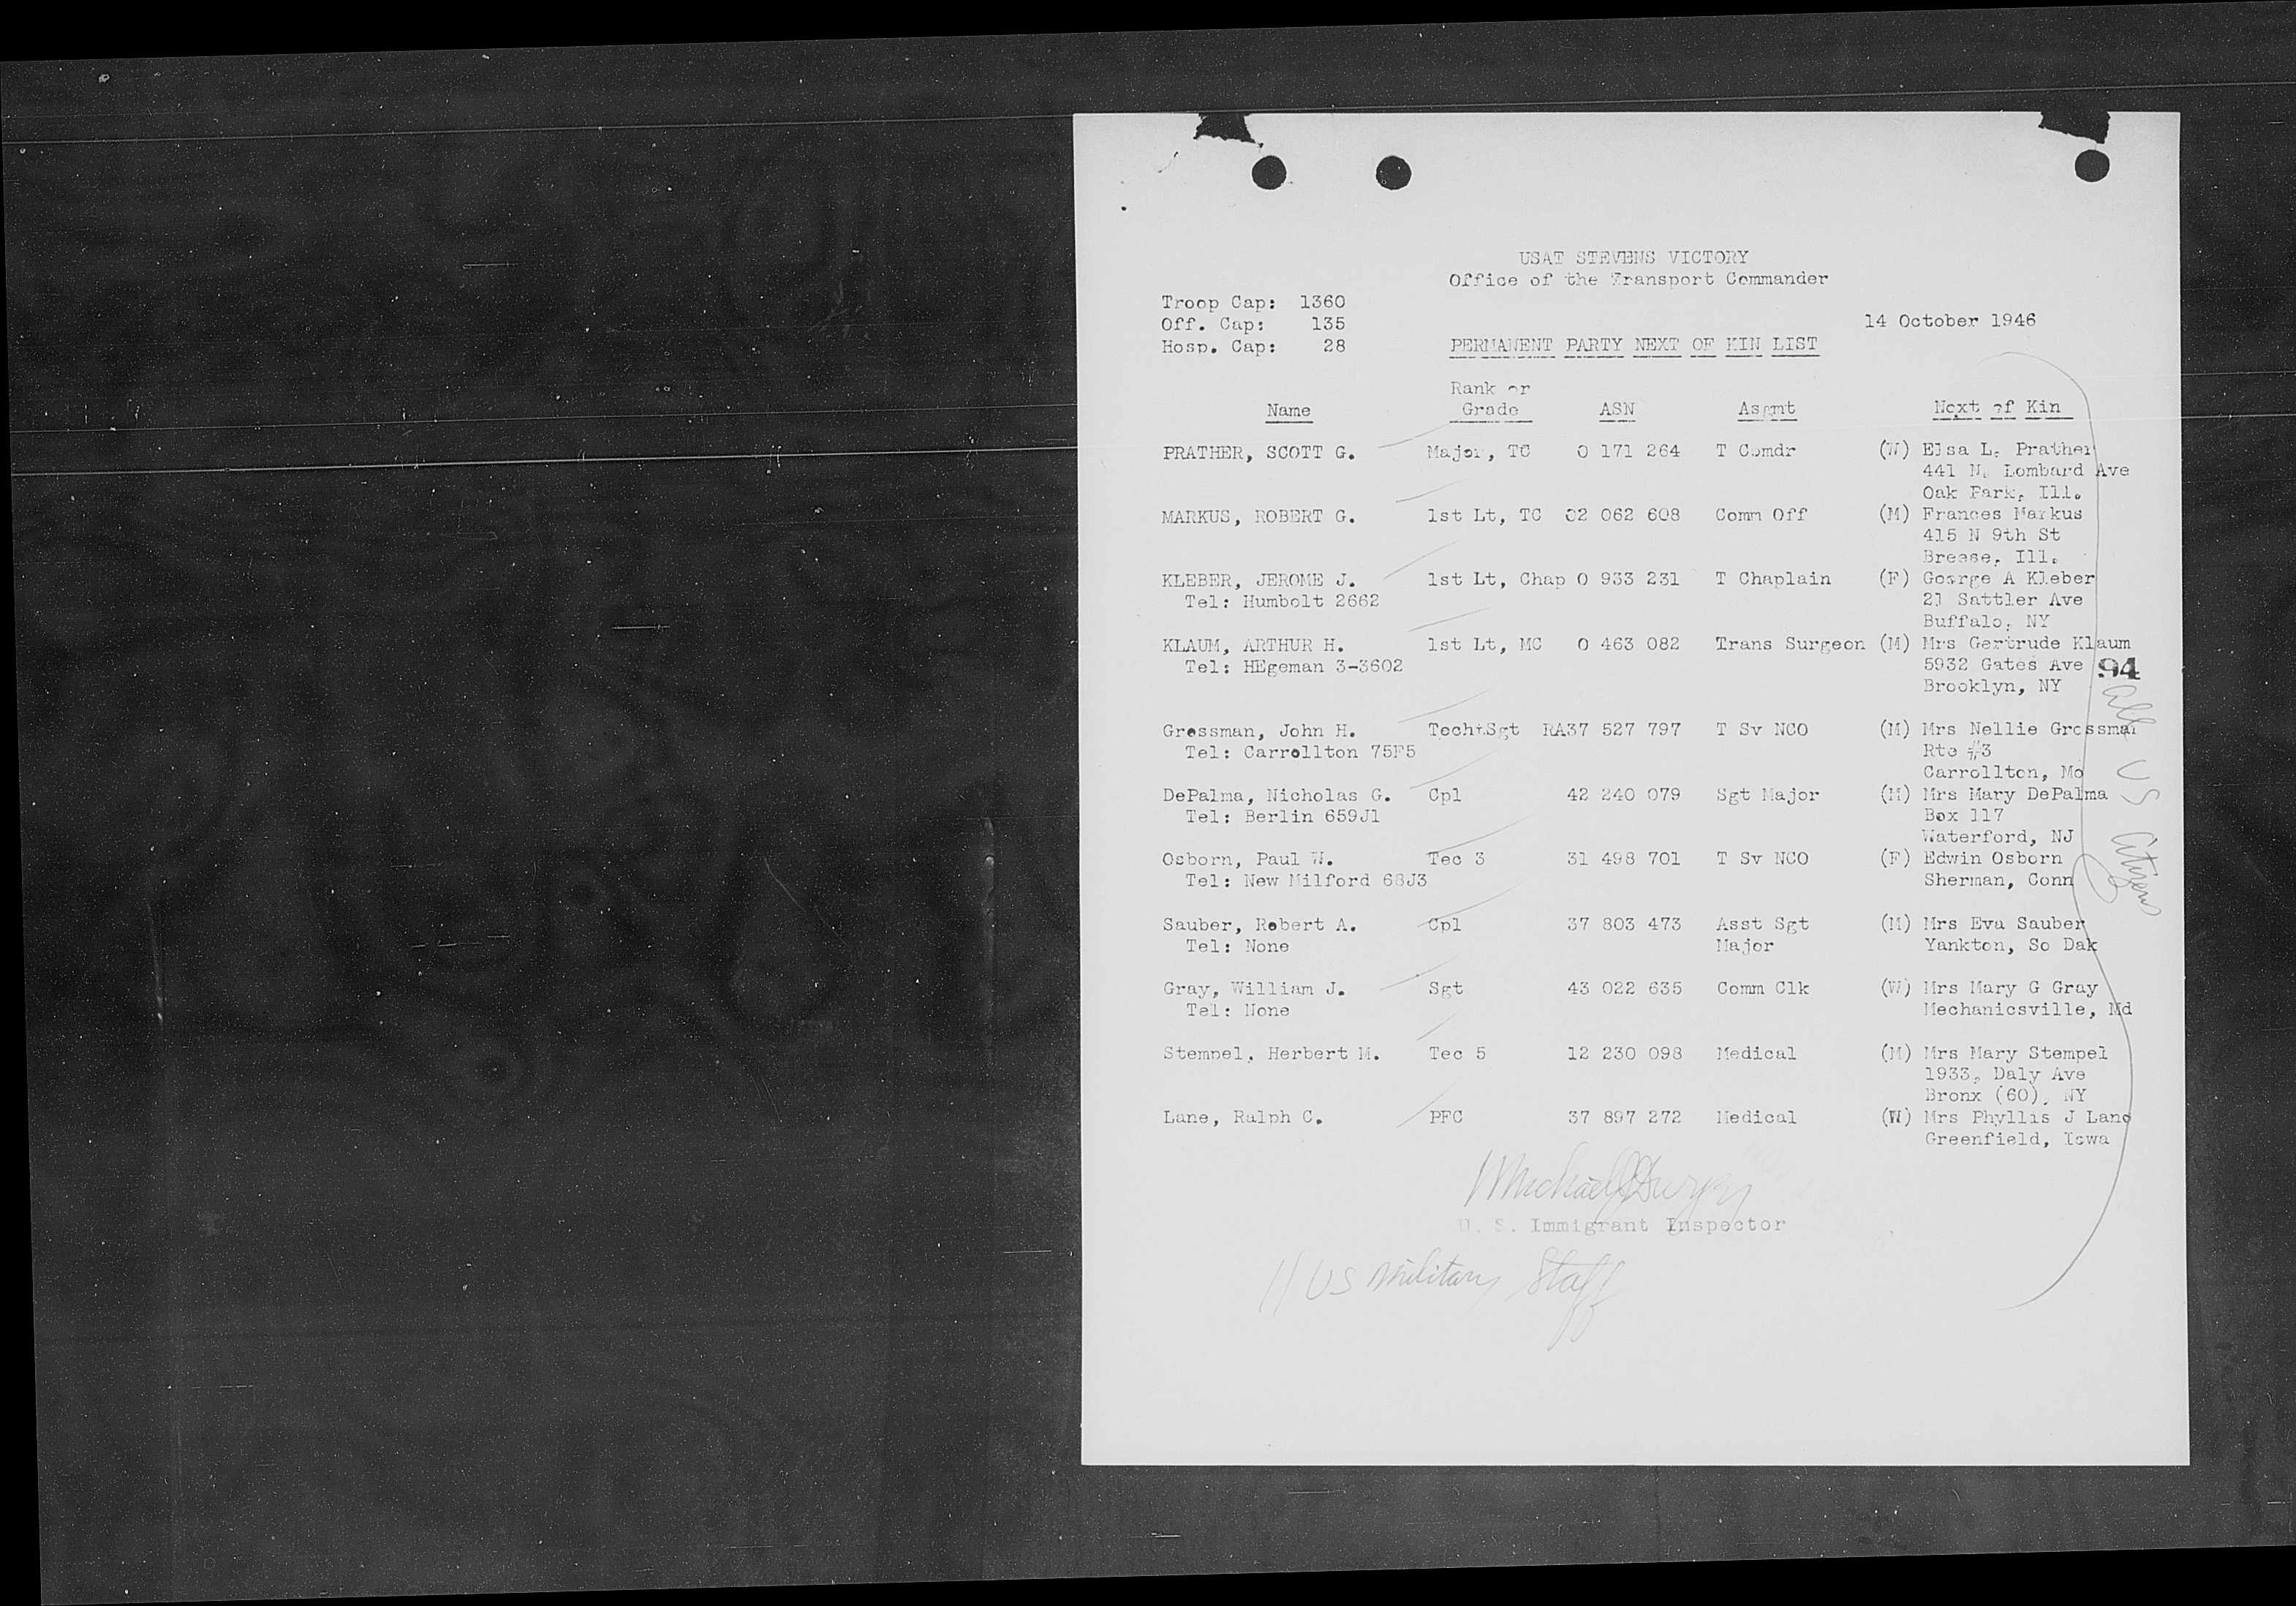 USAT STEVENS VICTORY
Office of the Transport Commander
Troop Cap: 1360
Off. Cap: 135
14 October 1946
Hosp. Cap: 28
PERMANENT PARTY NEXT OF KIN LIST
Rank or
Name Grade ASN Asgmt Next of Kin
PRATHER, SCOTT G. Major, TC 0 171 264 T Comdr (W) Elsa L. Prather
441 N. Lombard Ave
Oak Park, Ill.
MARKUS, ROBERT G. 1st Lt, TC 02 062 608 Comm Off (M) Frances Markus
415 N 9th St
Breese, Ill.
KLEBER, JEROME J. 1st Lt, Chap 0 933 231 T Chaplain (F) George A Kleber
Tel: Humbolt 2662 21 Sattler Ave
Buffalo, NY
KLAUM, ARTHUR H. 1st Lt, MC 0 463 082 Trans Surgeon (M) Mrs Gertrude Klaum
Tel: HEgeman 3-3602 5932 Gates Ave 94
Brooklyn, NY
All US Citizens
Grossman, John H. Tech Sgt RA37 527 797 T Sv NCO (M) Mrs Nellie Grossman
Tel: Carrollton 75F5 Rte #3
Carrollton, Mo
DePalma, Nicholas G. Cpl 42 240 079 Sgt Major (M) Mrs Mary DePalma
Tel: Berlin 659J1 Box 117
Waterford, NJ
Osborn, Paul W. Tec 3 31 498 701 T Sv NCO (F) Edwin Osborn
Tel: New Milford 68J3 Sherman, Conn
Sauber, Robert A. Cpl 37 803 473 Asst Sgt (M) Mrs Eva Sauber
Tel: None Major Yankton, So Dak
Gray, William J. Sgt 43 022 635 Comm Clk (W) Mrs Mary G Gray
Tel: None Mechanicsville, Md
Stempel, Herbert M. Tec 5 12 230 098 Medical (M) Mrs Mary Stempel
1933, Daly Ave
Bronx (60), NY
Lane, Ralph C. PFC 37 897 272 Medical (W) Mrs Phyllis J Lane
Greenfield, Iowa
Michael
U. S. Immigrant Inspector
11 US Military Staff